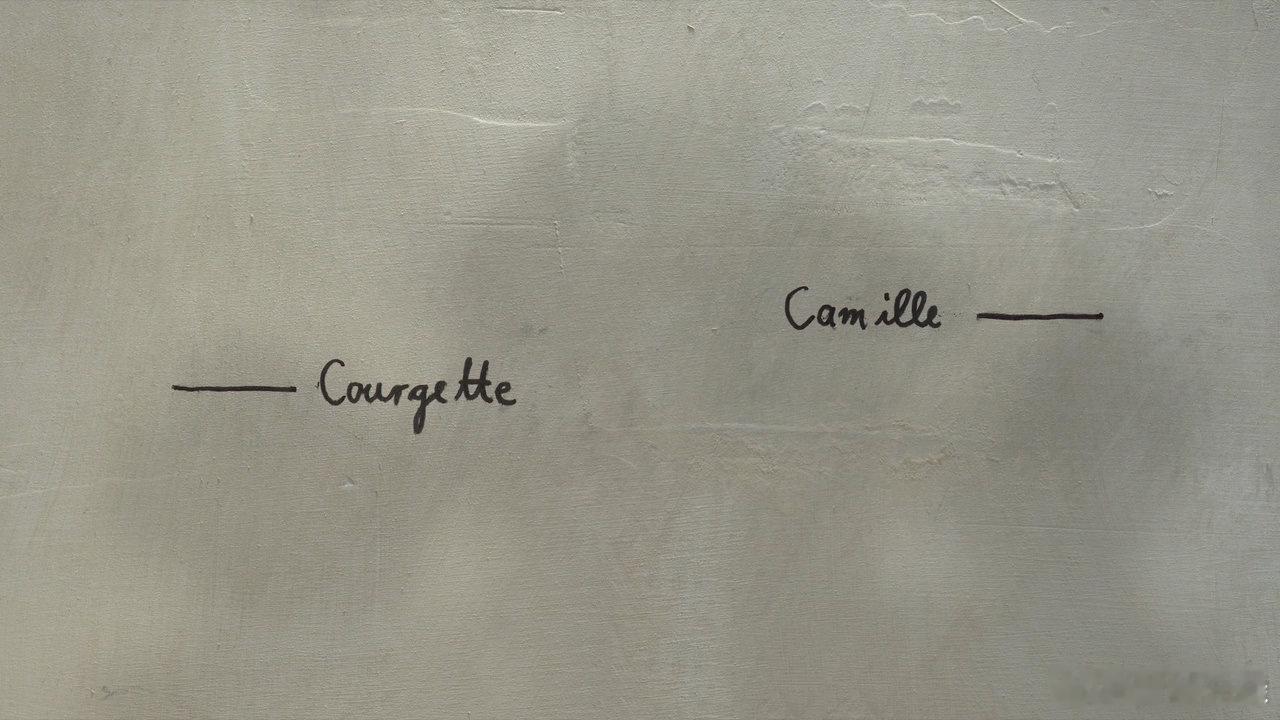 Camille
Courgette